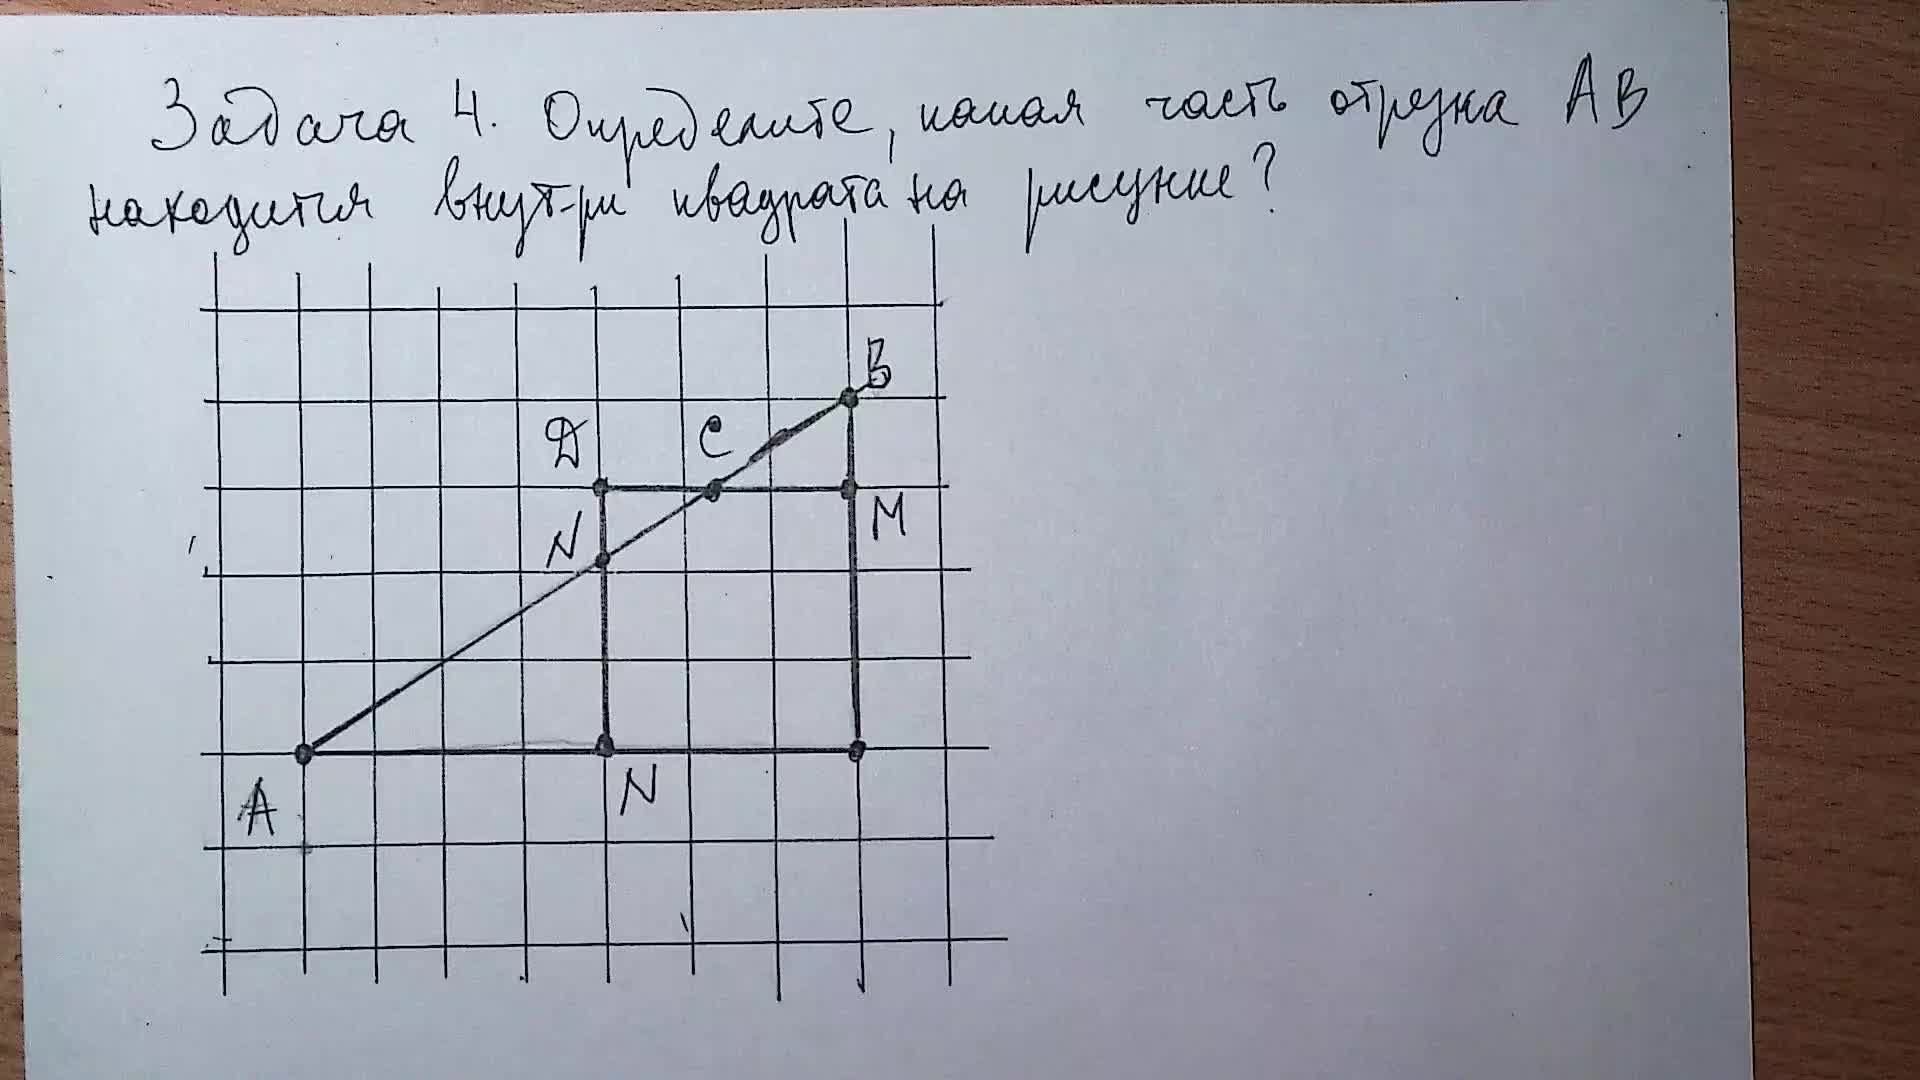 Задача 4. Определите, какая часть отрезка АВ
находится внут-ри квадрата на рисунке?
В
D C
N M
A N